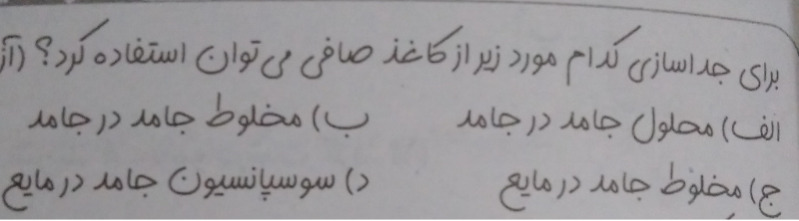 برای جداسازی کدام مورد زیر از کاغذ صافی می‌توان استفاده کرد؟ (آز
الف) محلول جامد در جامد ب) مخلوط جامد در جامد
ج) مخلوط جامد در مایع د) سوسپانسیون جامد در مایع